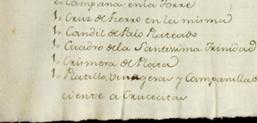 Campana, en la Torre
1, Cruz de hierro en la misma
1, Candil de Palo Plateado
1, Cuadro de la Santissima Trinidad
1, Crismera de Plata
1, Platillo, Vinageras y Campanilla
ciente a Crucecitas